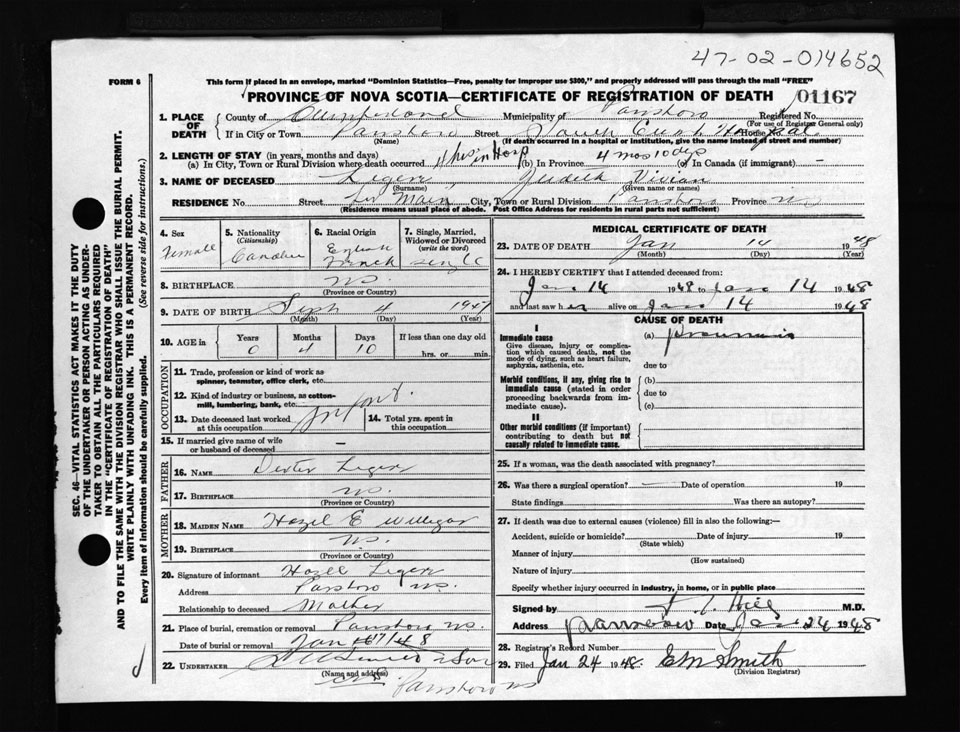 47-02-014652
FORM 6
This form if placed in an envelope, marked "Dominion Statistics—Free, penalty for improper use $300," and properly addressed will pass through the mail "FREE"
PROVINCE OF NOVA SCOTIA—CERTIFICATE OF REGISTRATION OF DEATH
01167
1. PLACE OF DEATH
County of Cumberland Municipality of Parrsboro Registered No.
(For use of Registrar General only)
If in City or Town Parrsboro Street South Cumb House No.
(Name) (If death occurred in a hospital or institution, give the name instead of street and number)
2. LENGTH OF STAY (in years, months and days)
(a) In City, Town or Rural Division where death occurred in Hosp (b) In Province 4 mos 10 dys (c) In Canada (if immigrant) —
3. NAME OF DECEASED Legere Judith Vivian
(Surname) (Given name or names)
RESIDENCE No. Street Main City, Town or Rural Division Parrsboro Province NS
(Residence means usual place of abode. Post Office Address for residents in rural parts not sufficient)
4. Sex
Female
5. Nationality
(Citizenship)
Canadian
6. Racial Origin
English
French
7. Single, Married, Widowed or Divorced
(write the word)
Single
8. BIRTHPLACE NS
(Province or Country)
9. DATE OF BIRTH Sept 4 1947
(Month) (Day) (Year)
10. AGE in
Years Months Days If less than one day old
0 4 10 hrs. or min.
OCCUPATION
11. Trade, profession or kind of work as spinner, teamster, office clerk, etc.
12. Kind of industry or business, as cotton-mill, lumbering, bank, etc.
Infant
13. Date deceased last worked at this occupation
14. Total yrs. spent in this occupation
15. If married give name of wife or husband of deceased —
FATHER
16. NAME Dexter Legere
17. BIRTHPLACE NS.
(Province or Country)
MOTHER
18. MAIDEN NAME Hazel E
19. BIRTHPLACE NS.
(Province or Country)
20. Signature of informant Hazel Legere
Address Parrsboro NS.
Relationship to deceased Mother
21. Place of burial, cremation or removal Parrsboro NS.
Date of burial or removal Jan 17/48
22. UNDERTAKER & Son
(Name and address)
Parrsboro NS
MEDICAL CERTIFICATE OF DEATH
23. DATE OF DEATH Jan 14 1948
(Month) (Day) (Year)
24. I HEREBY CERTIFY that I attended deceased from:
Jan 14 1948 to Jan 14 1948
and last saw her alive on Jan 14 1948
CAUSE OF DEATH
I
Immediate cause
Give disease, injury or complication which caused death, not the mode of dying, such as heart failure, asphyxia, asthenia, etc.
(a) Pneumonia
due to
Morbid conditions, if any, giving rise to immediate cause (stated in order proceeding backwards from immediate cause).
(b)
due to
(c)
II
Other morbid conditions (if important) contributing to death but not causally related to immediate cause.
25. If a woman, was the death associated with pregnancy?
26. Was there a surgical operation? — Date of operation 19
State findings Was there an autopsy?
27. If death was due to external causes (violence) fill in also the following:—
Accident, suicide or homicide? Date of injury 19
(State which)
Manner of injury
(How sustained)
Nature of injury
Specify whether injury occurred in industry, in home, or in public place
Signed by Hill M.D.
Address Parrsboro Date Jan 24 1948
28. Registrar's Record Number
29. Filed Jan 24 1948. E M Smith
(Division Registrar)
SEC. 46—VITAL STATISTICS ACT MAKES IT THE DUTY
OF THE UNDERTAKER OR PERSON ACTING AS UNDERTAKER
TO OBTAIN ALL THE PARTICULARS REQUIRED
IN THE "CERTIFICATE OF REGISTRATION OF DEATH"
AND TO FILE THE SAME WITH THE DIVISION REGISTRAR WHO SHALL ISSUE THE BURIAL PERMIT.
WRITE PLAINLY WITH UNFADING INK. THIS IS A PERMANENT RECORD.
Every item of information should be carefully supplied. (See reverse side for instructions.)